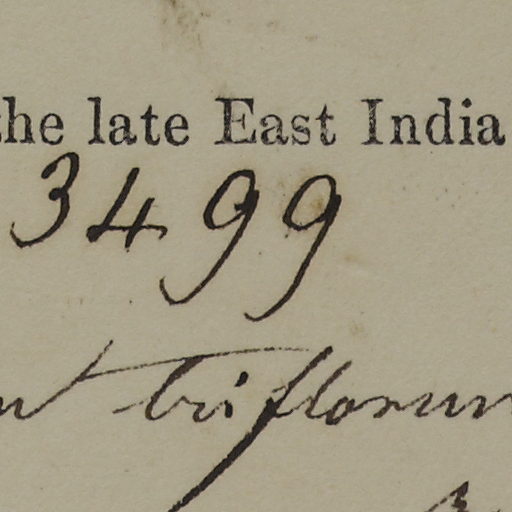 the late East India
3499
triflorum